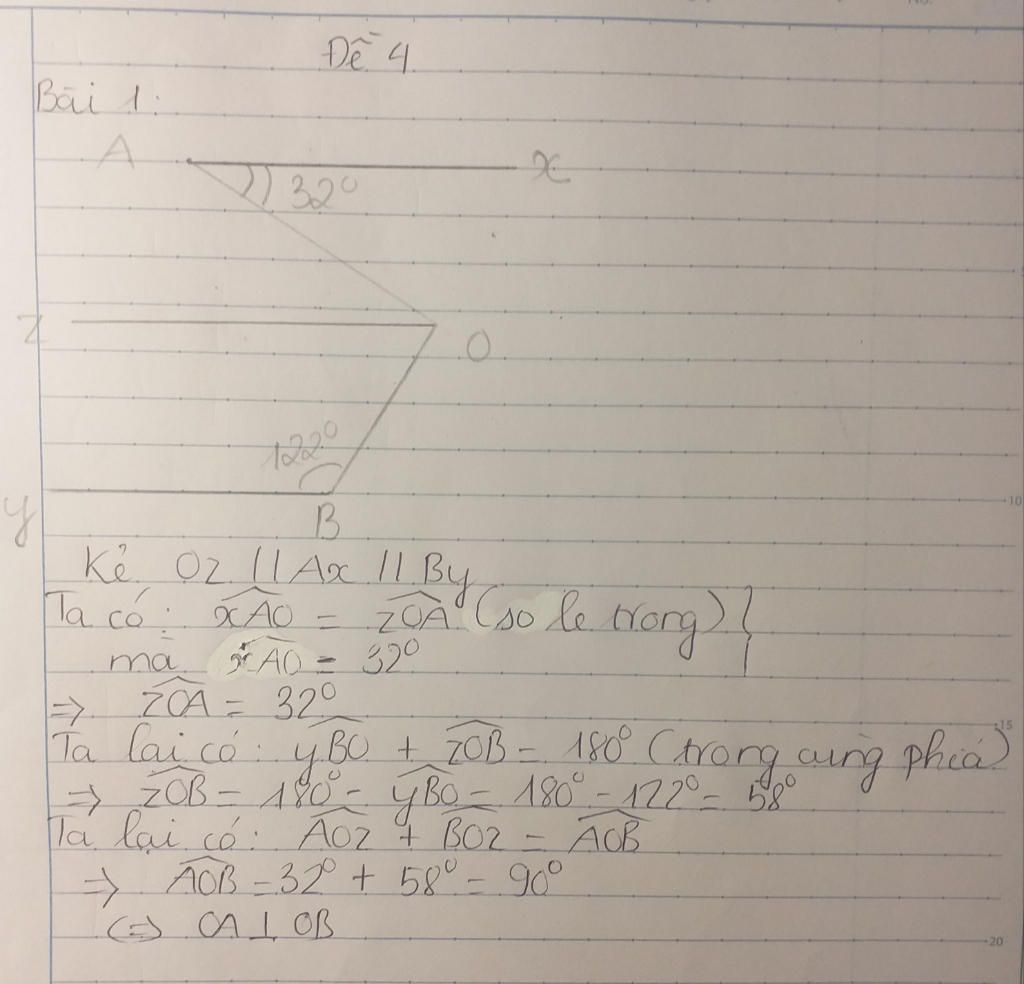 Đề 4
Bài 1:
A
x
32°
z
O
122°
y
B
Kẻ Oz // Ax // By
Ta có: xAO = zOA (so le trong) }
mà xAO = 32°
=> zOA = 32°
Ta lại có: yBO + zOB = 180° (trong cùng phía)
=> zOB = 180° - yBO = 180° - 122° = 58°
Ta lại có: AOz + BOz = AOB
=> AOB = 32° + 58° = 90°
(=> OA ⊥ OB
10
15
20